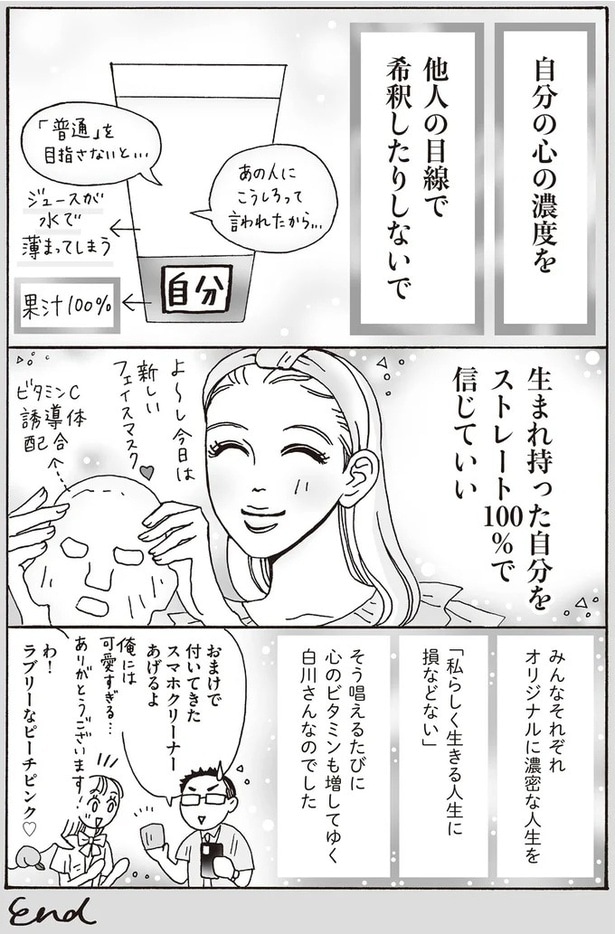 自分の心の濃度を
他人の目線で
希釈したりしないで
「普通」を
目指さないと…
あの人に
こうしろって
言われたから…
ジュースが
水で
薄まってしまう
自分
果汁100%
生まれ持った自分を
ストレート100%で
信じていい
よ〜し今日は
新しい
フェイスマスク♥
ビタミンC
誘導体
配合
みんなそれぞれ
オリジナルに濃密な人生を
「私らしく生きる人生に
損などない」
そう唱えるたびに
心のビタミンも増してゆく
白川さんなのでした
おまけで
付いてきた
スマホクリーナー
あげるよ
俺には
可愛すぎる…
ありがとうございます!
わ!
ラブリーなピーチピンク♡
End